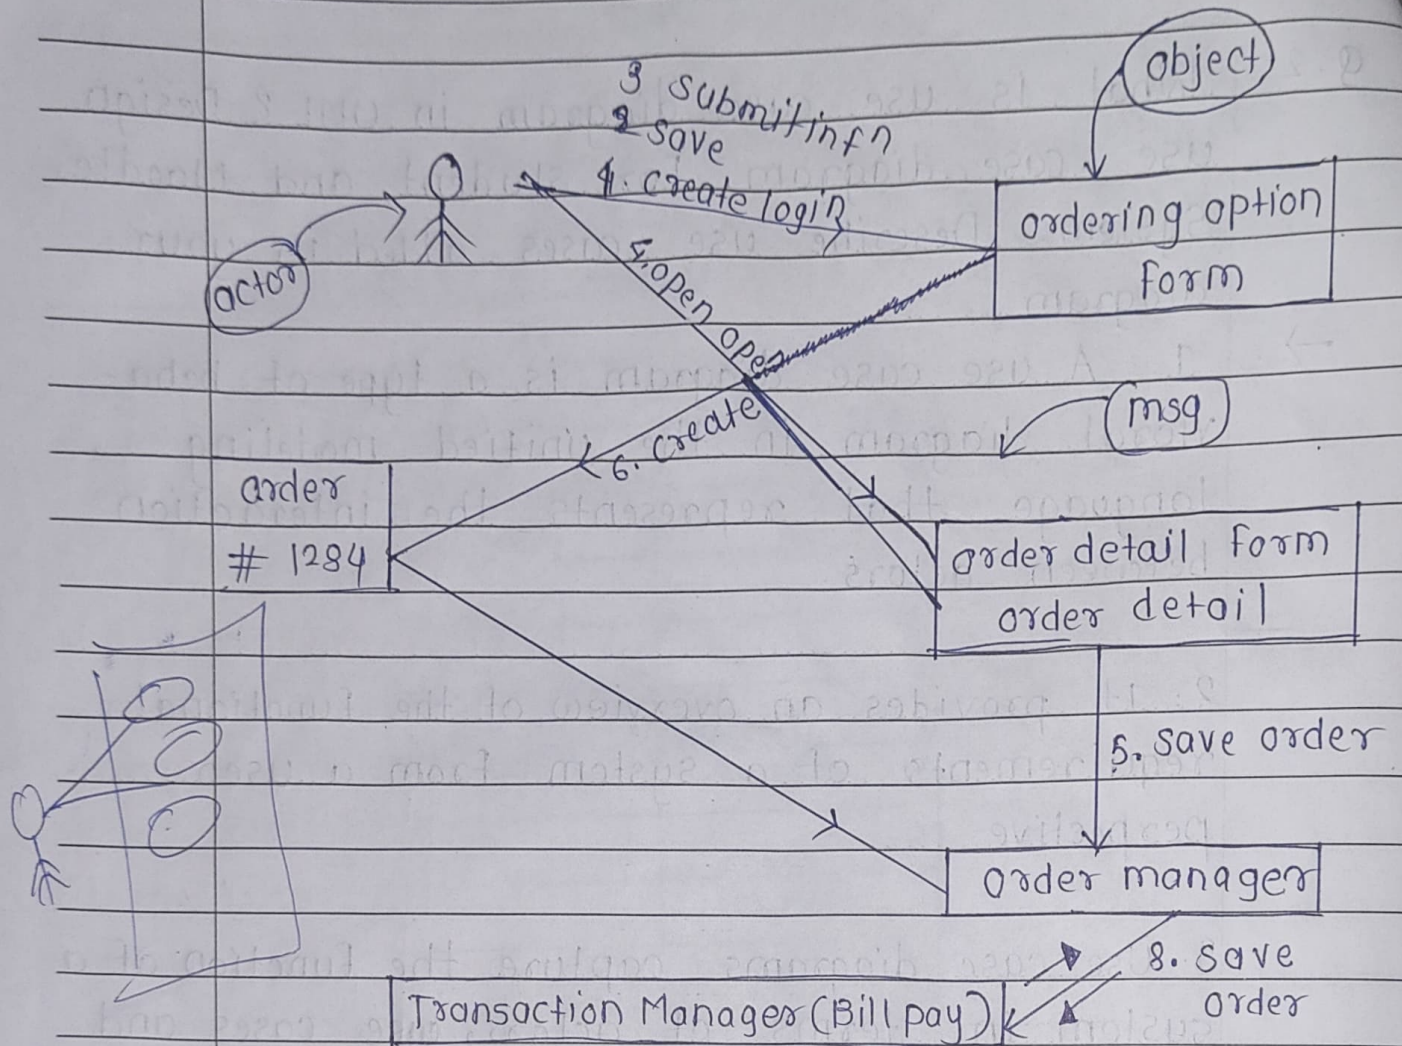 object
3 submit infn
2 save
1. create login
ordering option
form
actor
5. open
open
msg
6. create
order
# 1284
order detail form
order detail
5. save order
order manager
8. save
order
Transaction Manager (Bill pay)